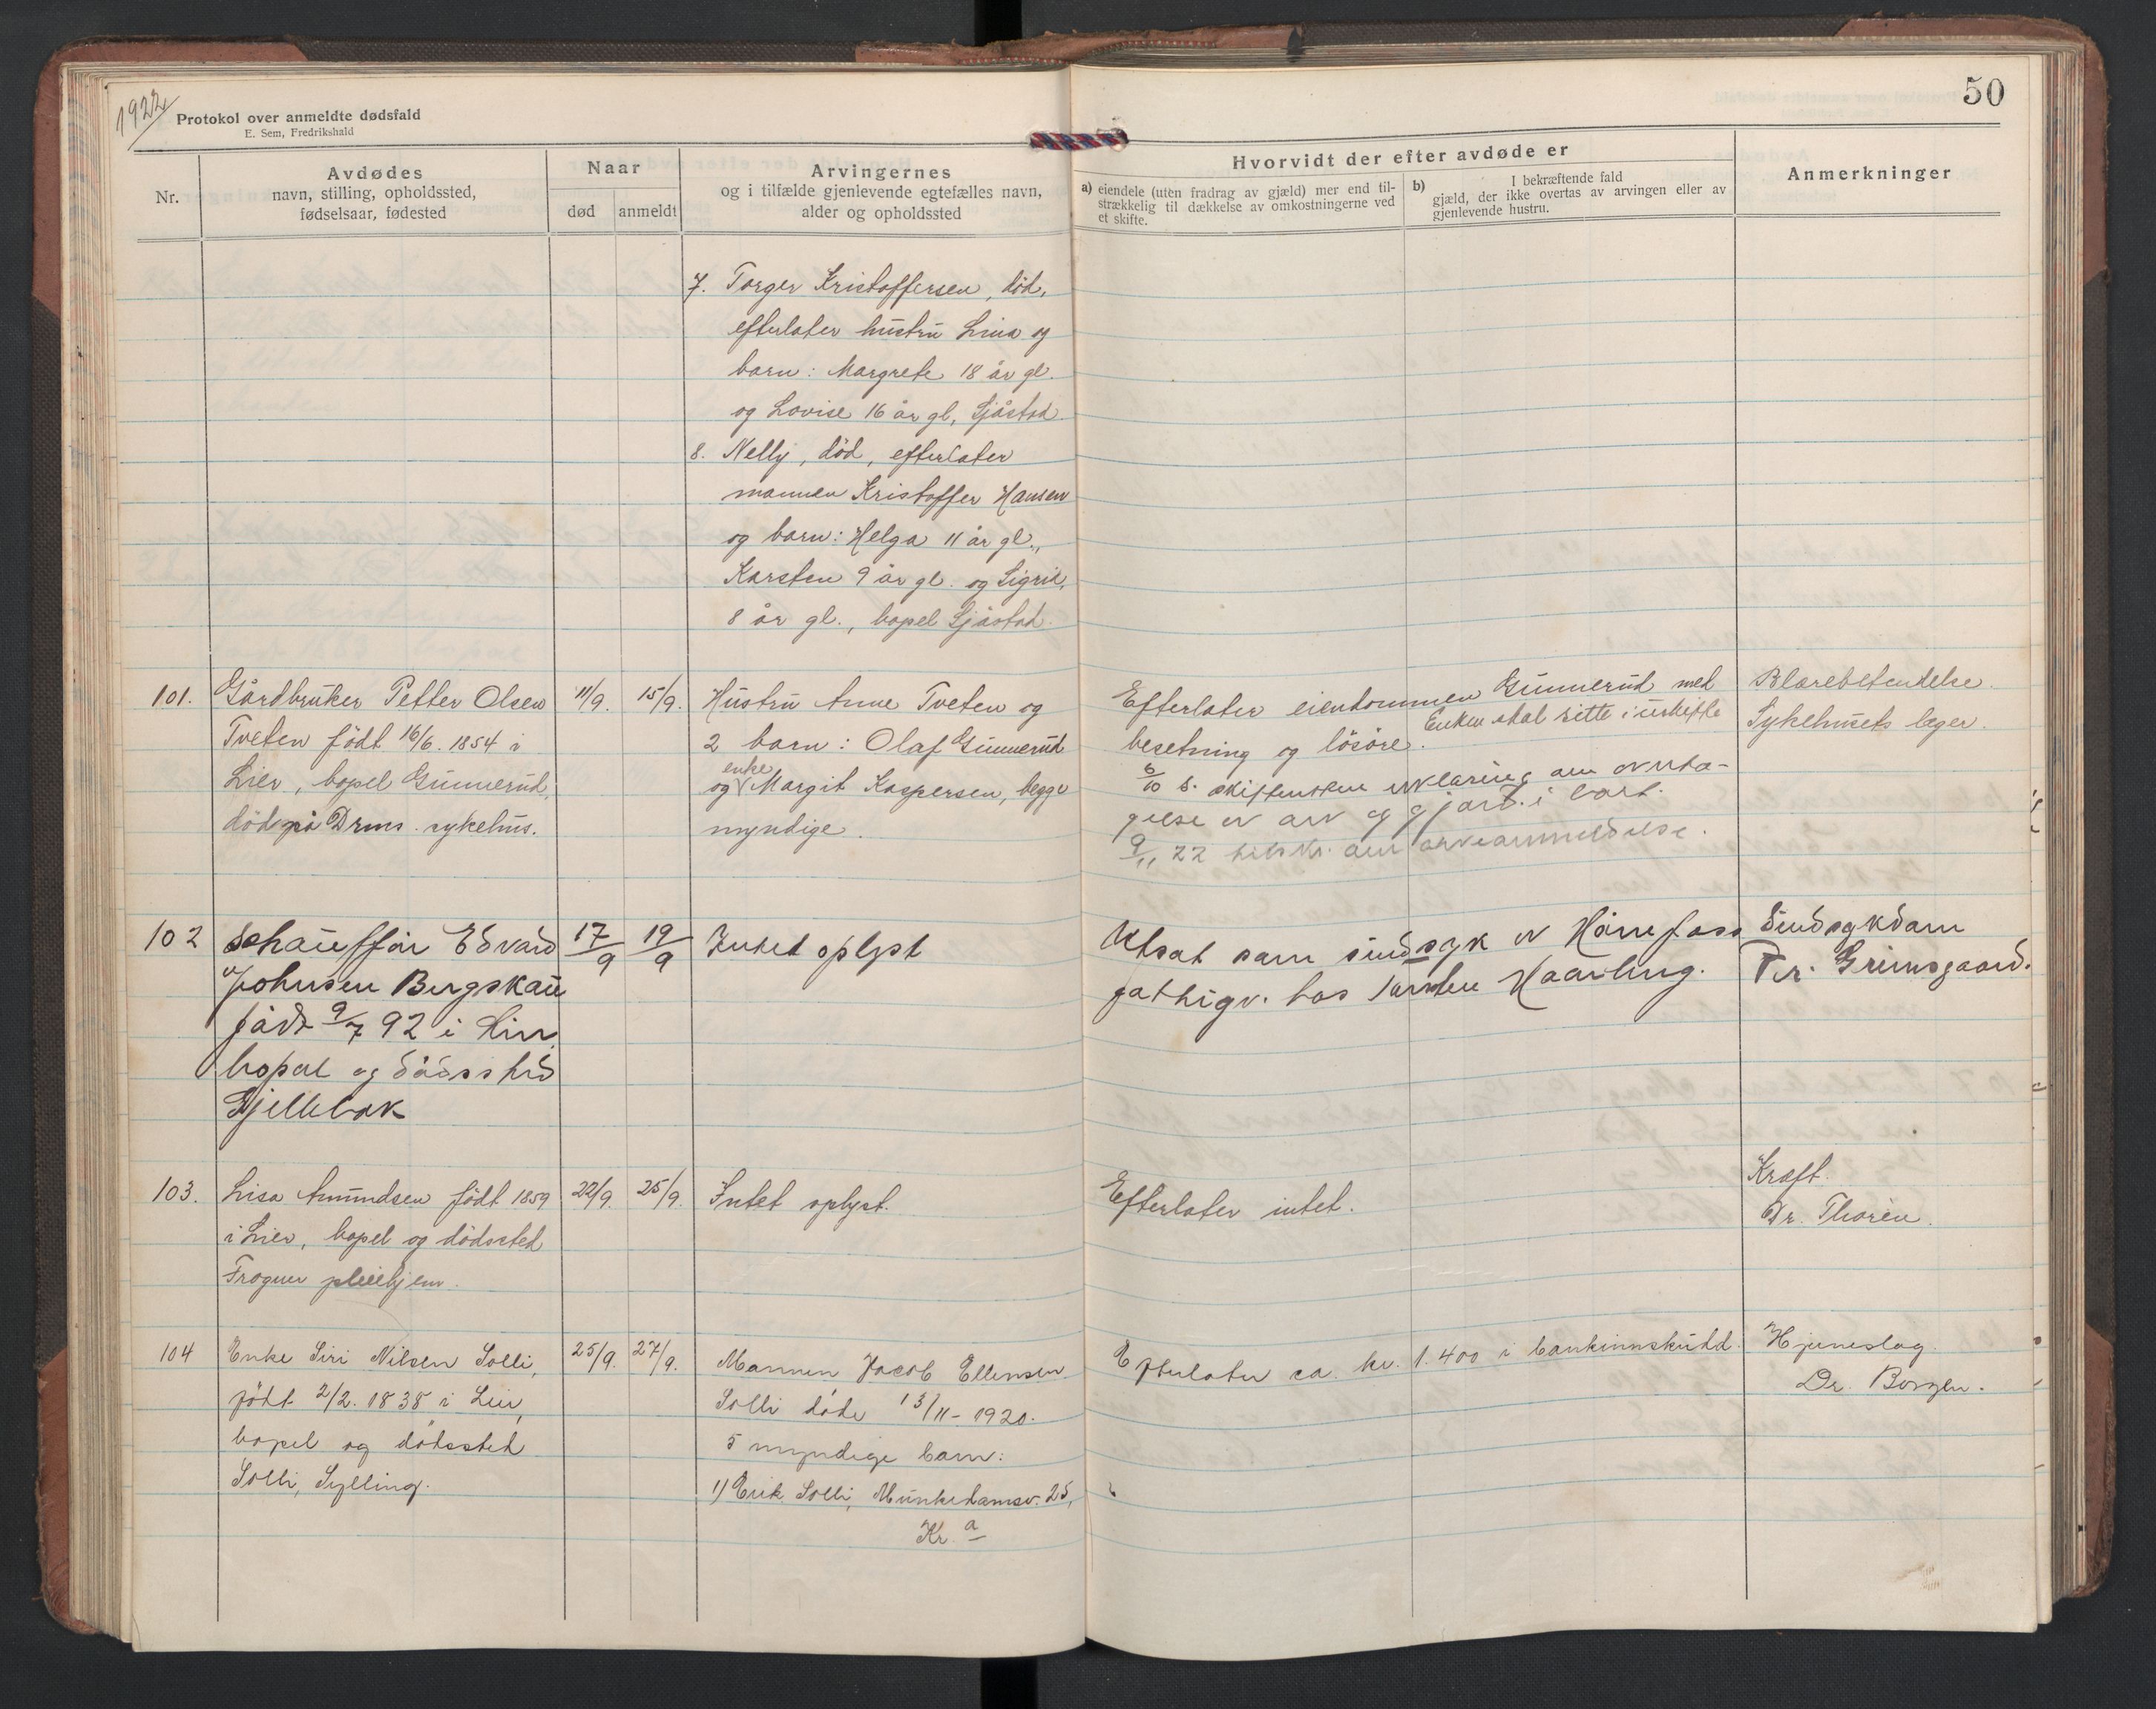 1922
Protokol over anmeldte dødsfald
E. Sem, Fredrikshald
50
Nr.
Avdødes
navn, stilling, opholdssted,
fødselsaar, fødested
Naar
død
anmeldt
Arvingernes
og i tilfælde gjenlevende egtefælles navn,
alder og opholdssted
Hvorvidt der efter avdøde er
a) eiendele (uten fradrag av gjæld) mer end til-
strækkelig til dækkelse av omkostningerne ved
et skifte.
b) I bekræftende fald
gjæld, der ikke overtas av arvingen eller av
gjenlevende hustru.
Anmerkninger
7. Torger Kristoffersen, død,
efterlater hustru Lina og
barn: Margrete 18 år gl.
og Lovise 16 år gl, Sjåstad.
8. Nelly, död, efterlater
mannen Kristoffer Hansen
og barn: Helga 11 år gl.,
Karsten 9 år gl. og Sigrid,
8 år gl., bopel Sjåstad.
101.
Gårdbruker Petter Olsen
Tveten födt 16/6. 1854 i
Lier, bopel Gunnerud,
död på Drms. sykehus.
11/9.
15/9.
Hustru Anne Tveten og
2 barn: Olaf Gunnerud
og enke Margit Kaspersen, begge
myndige.
Efterlater eiendommen Gunnerud med
besetning og lösöre. Enken skal sitte i uskifte
6/10 s. skiftensken erklæring om overta-
gelse av arv og gjæld i
9/11 22 tilskr. om arveanmeldelse.
Blærebetendelse.
Sykehusets læger.
102
Schauffør Edvard
Johnsen Bergskau
född 9/7 92 i Lier.
bopæl og dödssted
Gjellebæk
17/9
19/9
Intet oplyst
Utsat som sindssyk av Hönefoss
fattigv. hos Haarling.
Sindssykdom
Dr. Grimsgaard.
103.
Lisa Amundsen födt 1859
i Lier, bopel og dödssted
Frogner pleiehjem.
22/9.
25/9.
Intet oplyst.
Efterlater intet.
Kræft.
Dr. Thorén.
104
Enke Siri Nilsen Solli,
födt 2/2. 1838 i Lier,
bopel og dödssted
Solli, Sylling.
25/9.
27/9.
Mannen Jacob Ellensen
Solli döde 13/11-1920.
5 myndige barn:
1) Erik Solli, Munkedamsv. 25,
Kr.a
Efterlater ca. kr. 1.400 i bankinnskudd.
Hjerneslag.
Dr. Borgen.